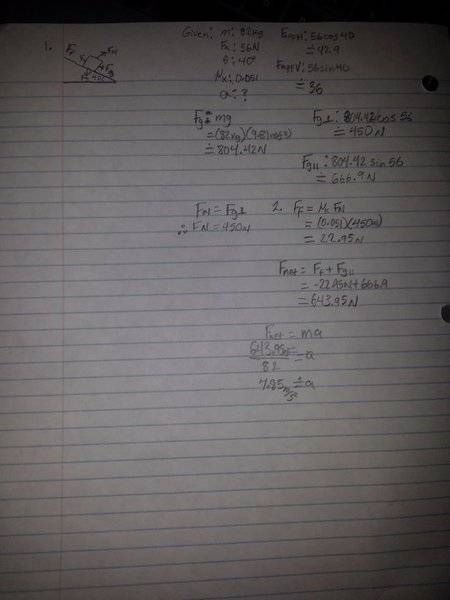 1.
Given: m: 82kg
Fa: 56N
θ: 40°
μk: 0.051
a: ?
56cos40
≐ 42.9
56sin40
≐ 36
Fg = mg
= (82kg)(9.81m/s²)
= 804.42N
Fg⊥: 804.42cos 56
≐ 450N
Fg||: 804.42 sin 56
≐ 666.9N
FN = Fg⊥
∴ FN = 450N
2. FF = μk FN
= (0.051)(450N)
= 22.95N
Fnet = FF + Fg||
= -22.95N + 666.9
= 643.95N
Fnet = ma
643.95 = a
82
7.85 m/s² ≐ a